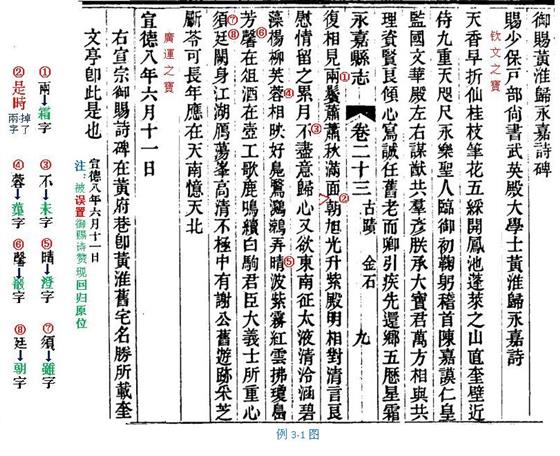 御賜黃淮歸永嘉詩碑
賜少保戶部尚書武英殿大學士黃淮歸永嘉詩
钦文之寶
天香早折仙桂枝筆花五綵開鳳池蓬萊之山直奎壁近
侍九重天咫尺永樂聖人臨御初鞠躬稽首陳嘉謨仁皇
監國文華殿左右謀猷共羣彥朕承大寶君萬方相與共
理資賢良傾心寫誠任舊老而卿引疾先還鄉五厯星霜
永嘉縣志 卷二十三 古蹟 金石 九
① ②
復相見兩鬢蕭蕭秋滿面朝旭光升紫殿明相對清言良
③
慰情留之累月不盡意歸心又欲東南征太液清泠涵碧
④ ⑤
藻楊柳芙蓉相映好鳧鷖鸂鶒弄晴波紫霧紅雲拂瓊島
⑥
芳馨在俎酒在壺工歌鹿鳴續白駒君臣大義士所重心
⑦⑧
須廷闕身江湖鴈蕩峯高清不極中有謝公舊遊跡采芝
斸苓可長年應在天南憶天北
廣運之寶
宣德八年六月十一日
右宣宗御賜詩碑在黃府巷卽黃淮舊宅名勝所載奎
文亭卽此是也
宣德八年六月十一日
注：被误置御赐诗赞现回归原位
①兩↓霜字
②是時掉了兩字
③不↓未字
④蓉↓蕖字
⑤晴↓澄字
⑥馨↓殽字
⑦須↓雖字
⑧廷↓朝字
例 3-1 图